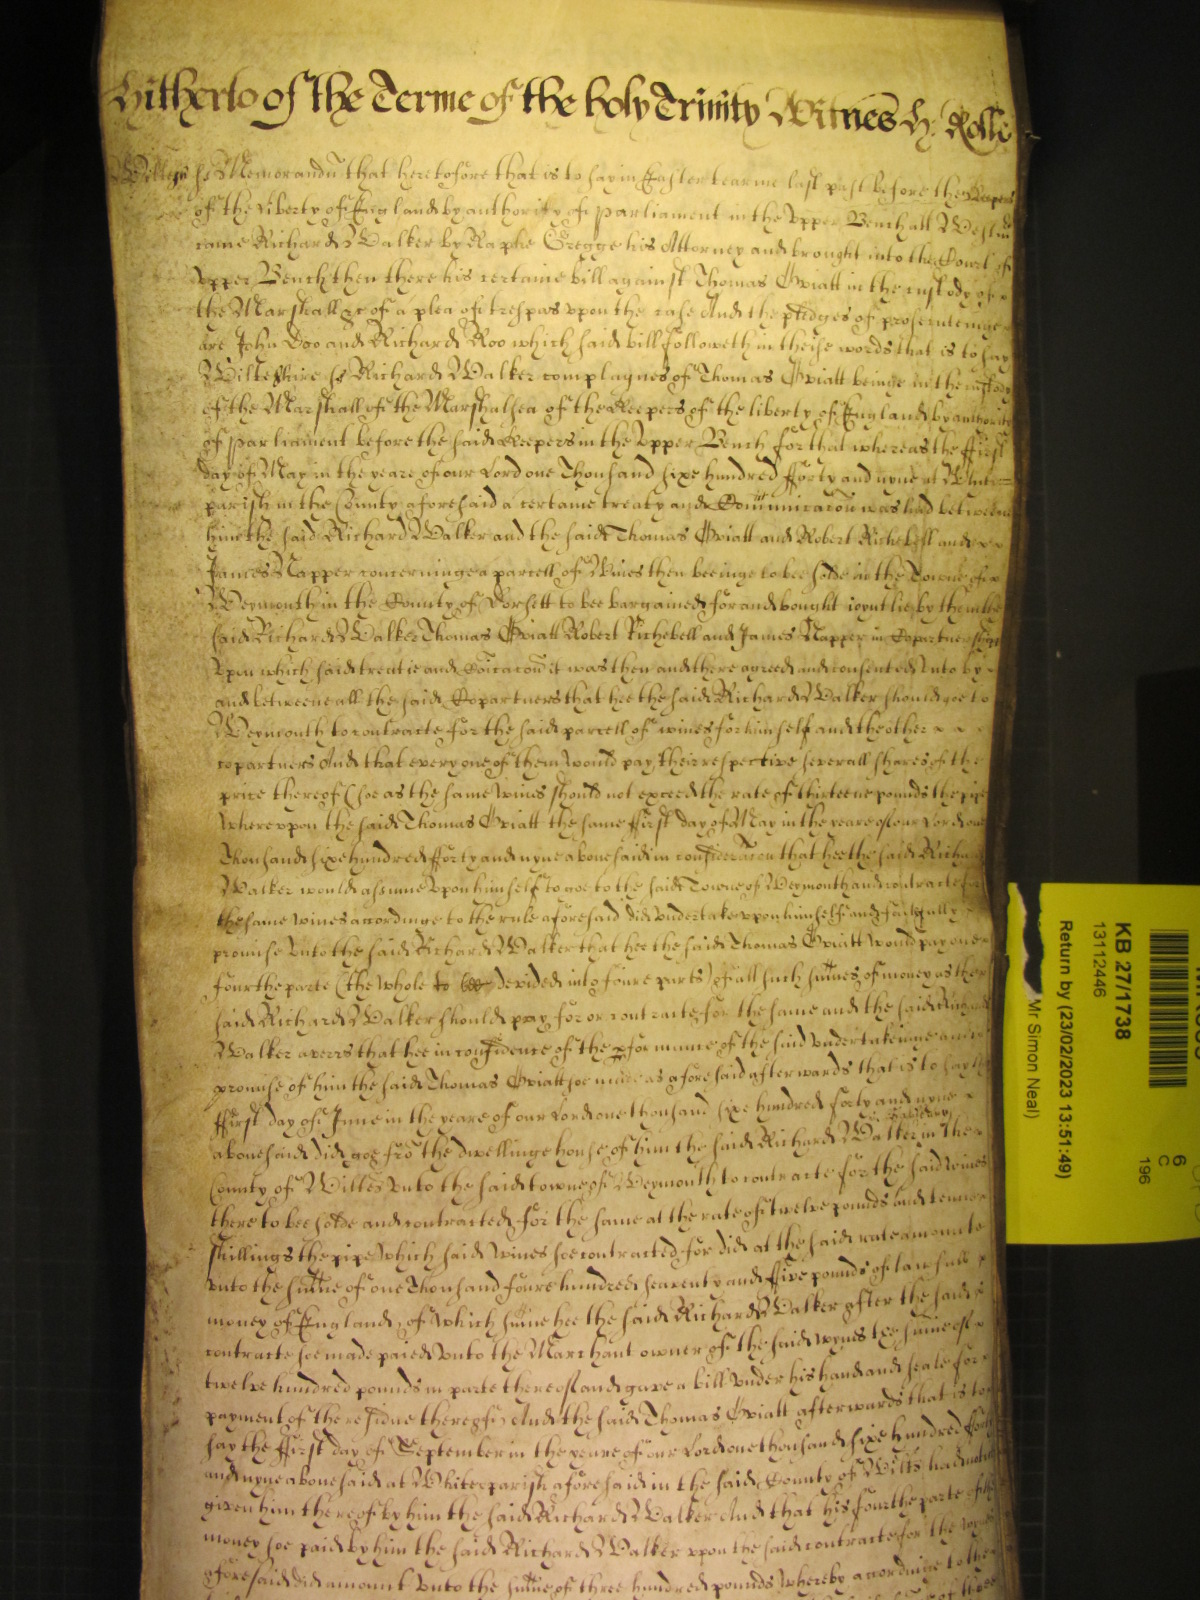 Hitherto of the Terme of the holy Trinity Witnes H: Rolle
Wiltess ss Memorandũ that heretofore that is to say in Easter tearme last past before the Keepers
of the liberty of England by authority of Parliament in the Upper Bench att Westm̃
came Richard Walker by Raphe Gregge his Attorney and brought into the Court of
Upper Bench then there his certaine bill against Thomas Gviatt in the custody of
the Marshall &c of a plea of trespas upon the case And the pledges of prosecuteinge
are John Doo and Richard Roo which said bill followeth in theise words that is to say
Wilteshire ss Richard Walker complaynes of Thomas Gviatt beinge in the custody
of the Marshall of the Marshalsea of the Keepers of the liberty of England by authority
of Parliament before the said Keepers in the Upper Bench for that whereas the ffirst
day of May in the yeare of our Lord one Thousand sixe hundred fforty and nyne at White=
parish in the County aforesaid a certaine treaty and Cõmunicacõn was had betweene
him the said Richard Walker and the said Thomas Gviatt and Robert Richbell and
James Napper concerninge a parcell of Wines then beeinge to bee solde in the Towne of
Weymouth in the County of Dorsett to bee bargained for and bought ioyntlie by them the
said Richard Walker Thomas Gviatt Robert Richebell and James Napper in Copartnershipp
Upon which said treatie and Cõicacõn it was then and there agreed and consented unto by
and betweene all the said Copartners that hee the said Richard Walker should goe to
Weymouth to contracte for the said parcell of wines for himself and the other
copartners And that every one of them would pay their respective severall shares of the
price thereof (soe as the same wines should not exceed the rate of thirteene pounds the pipe
Whereupon the said Thomas Gviatt the same ffirst day of May in the yeare of our Lord one
Thousand sixe hundred fforty and nyne abovesaid in consideracõn that hee the said Richard
Walker would assume upon himself to goe to the said Towne of Weymouth and contracte for
the same wines accordinge to the rule aforesaid did undertake upon himselfe and faithfully
promise unto the said Richard Walker that hee the said Thomas Gviatt would pay one
fourthe parte (the whole to bee devided into foure parts) of all such sum̃es of money as the
said Richard Walker should pay for or contracte for the same and the said Richard
Walker averrs that hee in confidence of the pformance of the said undertakeinge and
promise of him the said Thomas Gviatt soe made as aforesaid afterwards that is to say the
ffirst day of June in the yeare of our Lord one thousand sixe hundred forty and nyne
abovesaid did goe frõ the dwellinge house of him the said Richard Walker in the
County of Wiltes unto the said towne of Weymouth to contracte for the said wines
there to bee solde and contracted for the same at the rate of twelve pounds and tenne
shillings the pipe Which said wines soe contracted for did at the said rate amounte
unto the sum̃e of one Thousand foure hundred seaventy and ffive pounds of lawfull
money of England of which sum̃e hee the said Richard Walker after the said
contracte soe made paied unto the Marchant owner of the said wynes the sum̃e of
twelve hundred pounds in parte thereof and gave a bill under his hand and seale for
payment of the residue thereof And the said Thomas Gviatt afterwards that is to
say the ffirst day of September in the yeare of our Lord one thousand sixe hundred forty
and nyne abovesaid at Whiteparish aforesaid in the said County of Wilts had notice
given him thereof by him the said Richard Walker And that his fourthe parte of the
money soe paid by him the said Richard Walker upon the said contracte for the wynes
aforesaid did amount unto the sum̃e of three hundred pounds Whereby accordinge to the
KB 27/1738
13112446
Return by (23/02/2023 13:51:49)
Mr Simon Neal)
6
C
196